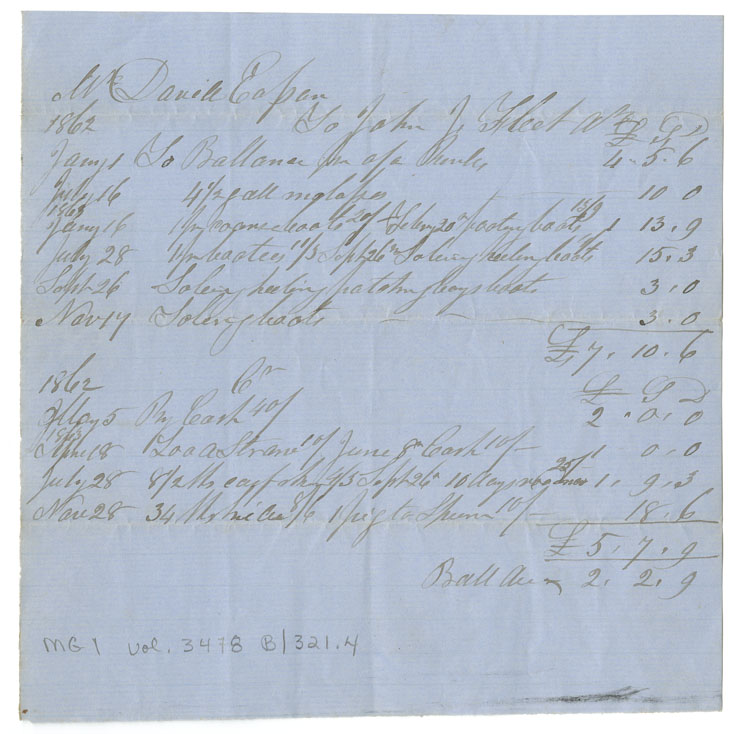 Mr David Eason
1862 To John J. Fleet Dr £ S D
Jany 1 To Ballance on a/c Rendr 4. 5. 6
July 16 4 1/2 gall molases 10 0
1863
Jany 16 1 pr coarse boots 20/ Febry 20th footing boots 13/9 1 13. 9
July 28 1 pr bootees 11/3 Sept 26th Soleing heeling boots 15. 3
Sept 26 Soleing heeling patching boys boots 3. 0
Nov 17 Soleing boots 3. 0
£ 7. 10. 6
1862 Cr £ S D
May 5 By Cash 40/ 2. 0. 0
1863
18 Load Straw 10/ June 8th Cash 10/- 1 0. 0
July 28 8 1/2 lbs calfskin /3 Sept 26th 10 days 25/ 1. 9. 3
Nov 28 34 lbs hide 8/6 1 pig 10/- 18. 6
£ 5. 7. 9
Ballance 2. 2. 9
MG 1 vol. 3478 B/321.4